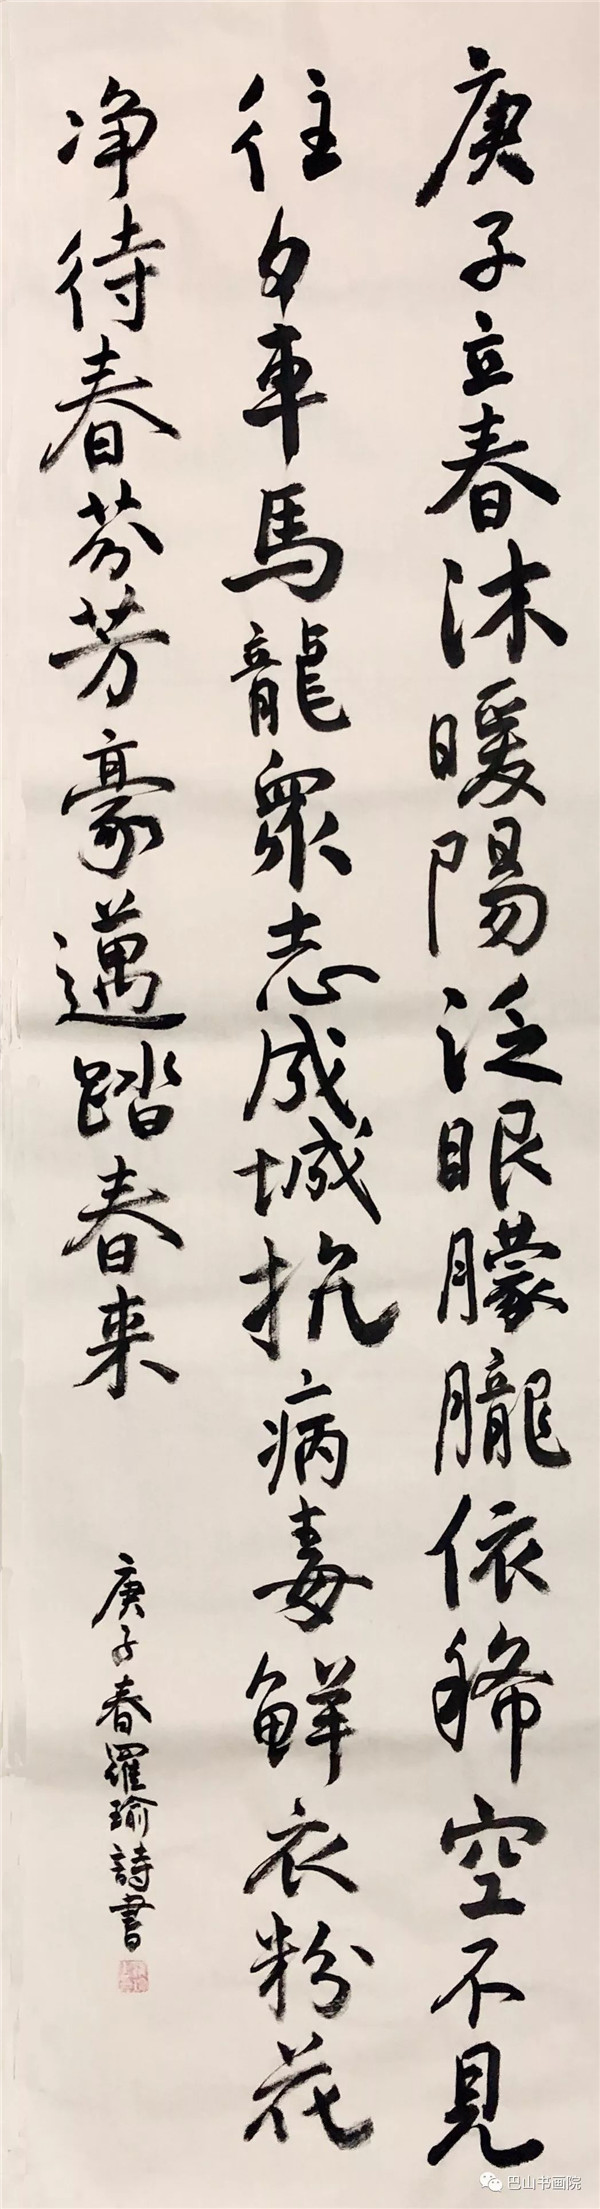 庚子立春沐暖陽泛眼朦朧依稀空不見
往夕車馬龍眾志成城抗病毒鮮衣粉花
净待春芬芳豪邁踏春来
庚子春羅瑜詩書
巴山书画院